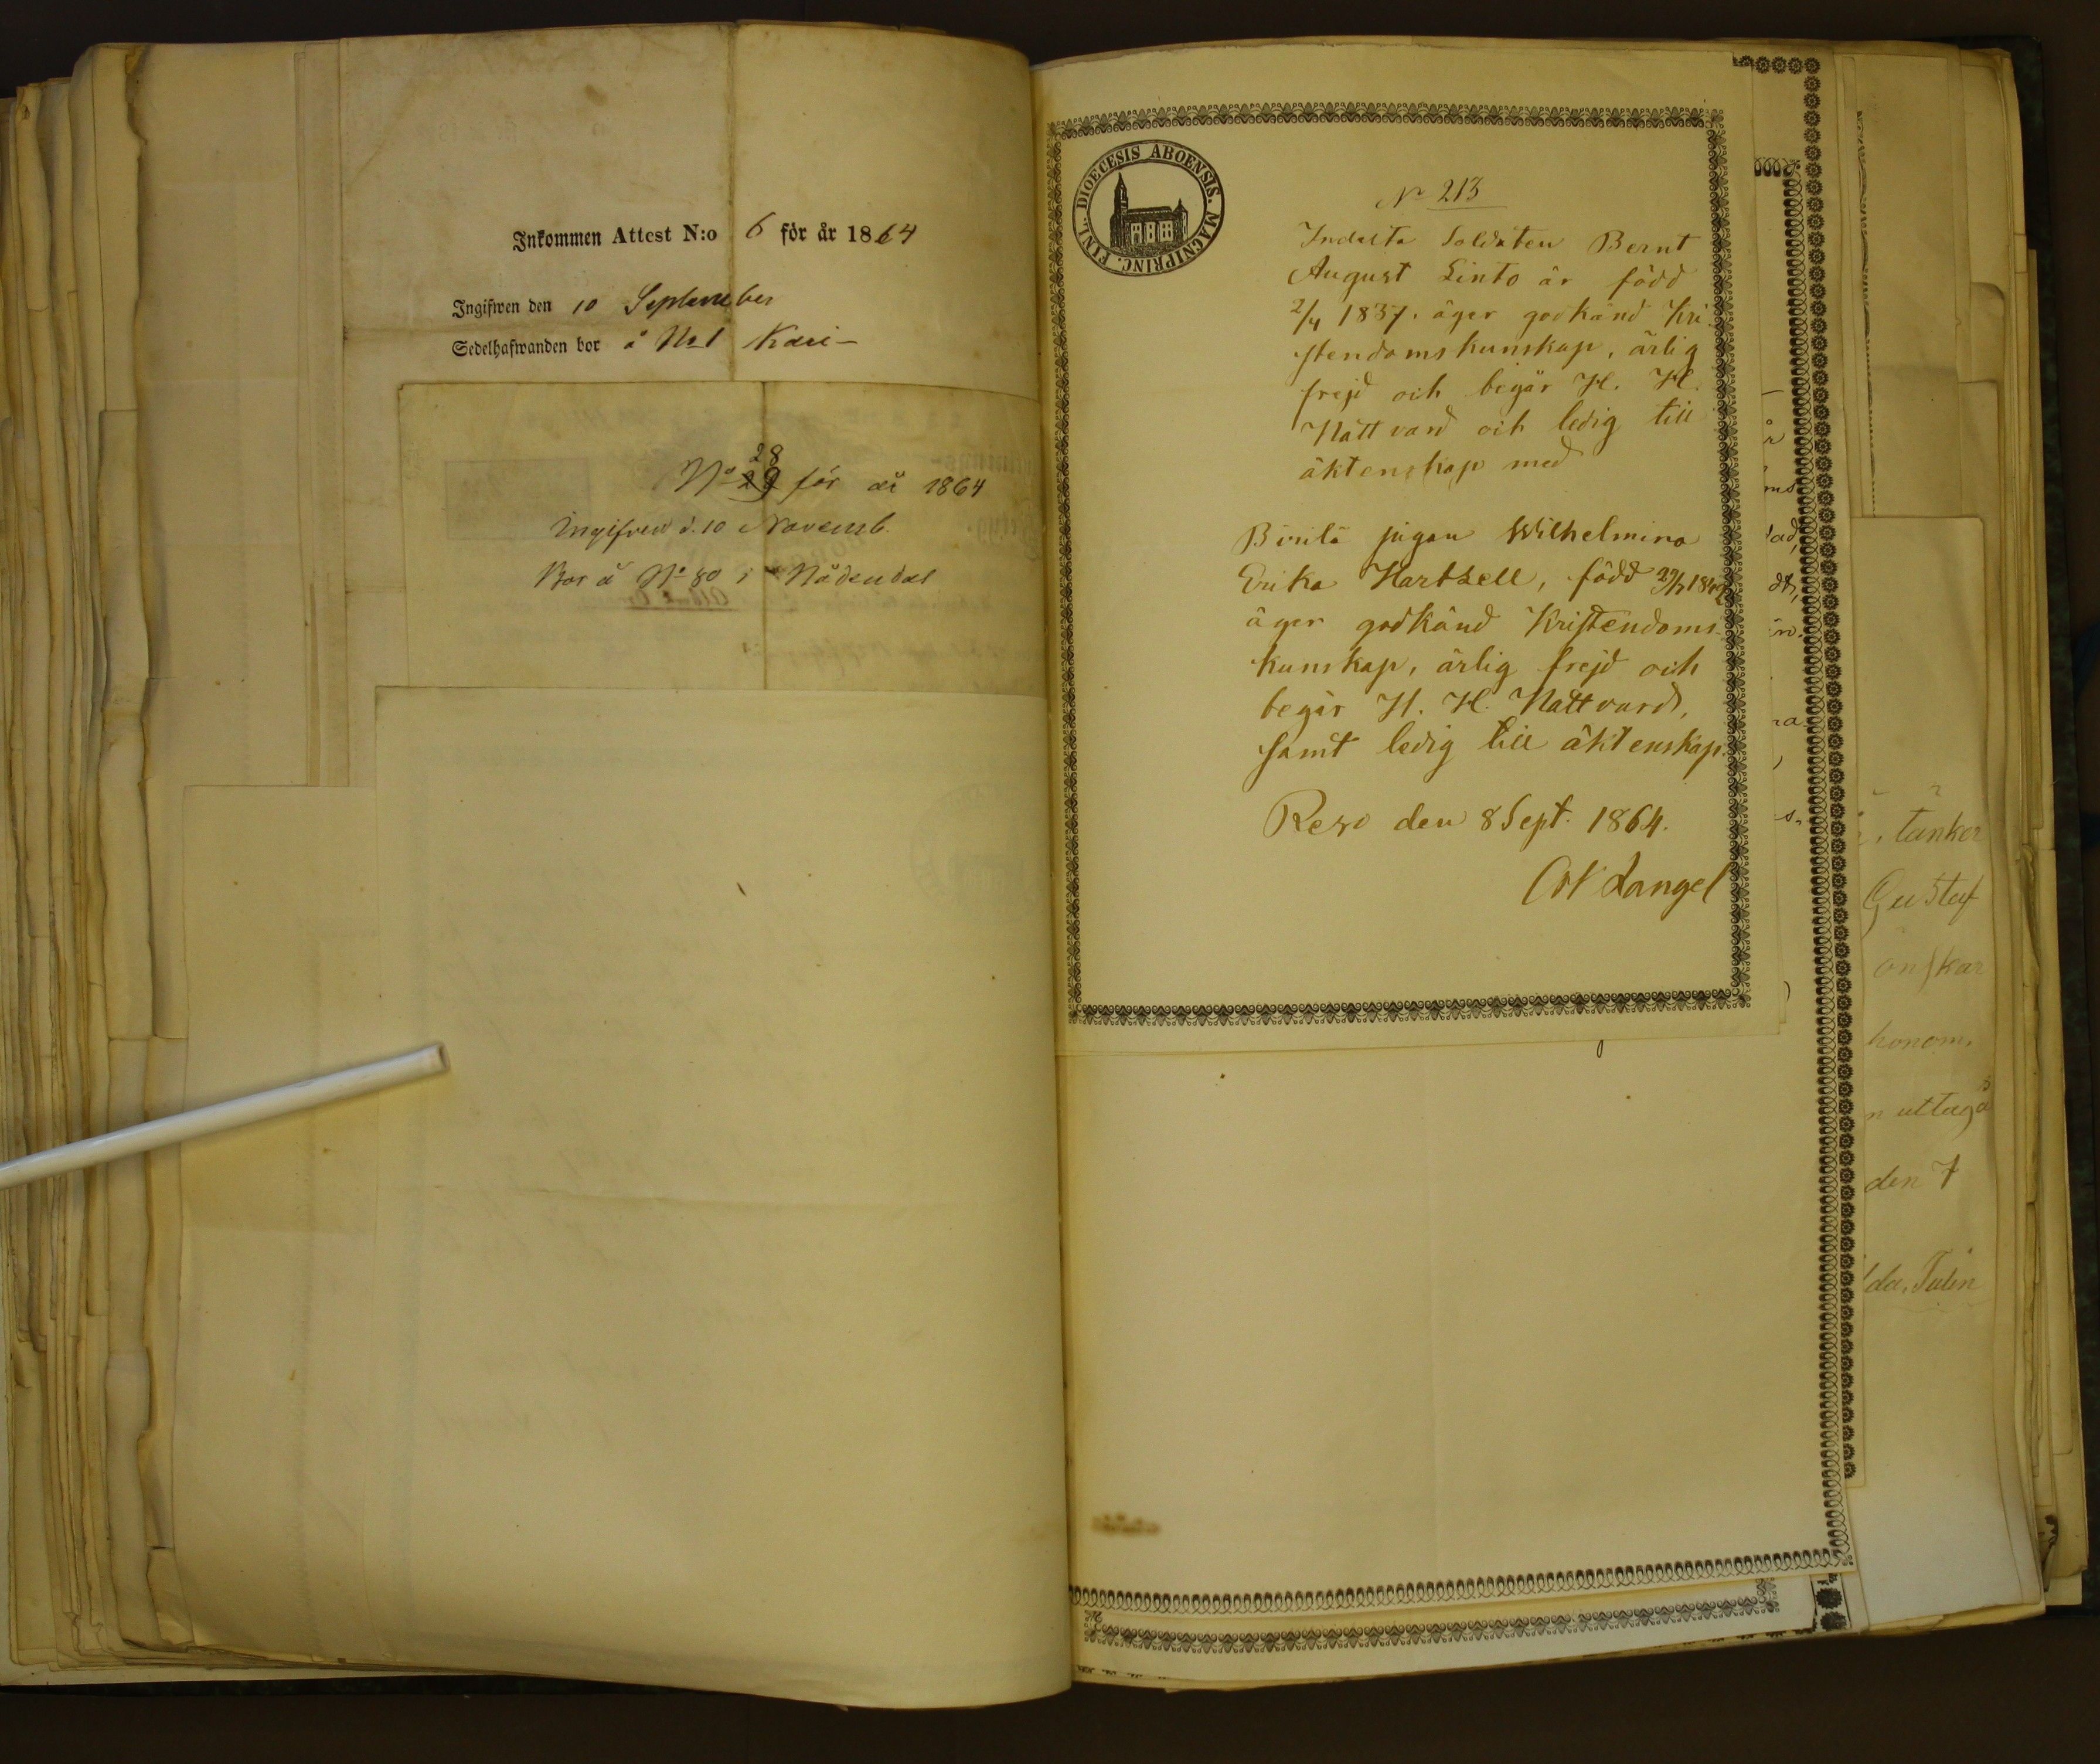 Inkommen Attest N:o 6 för år 1864
Ingifwen den 10 September
Sedelhafwanden bor å No 1 Kari-
28
No 29 för år 1864
Ingifven d. 10 Novemb.
Bor å No 80 i Nådendal
DIOECESIS ABOENSIS. MAGNIPRINC. FINL.
No 213
Indelta Soldaten Bernt
August Linto är född
2/4 1837. äger godkänd Kri
stendomskunskap, ärlig
frejd och begår H. H.
Nattvard och ledig till
äktenskap med
pigan Wilhelmina
Erika Hartzell, född
äger godkänd Kristendoms-
kunskap, ärlig frejd och
begår H. H. Nattvard,
samt ledig till äktenskap.
Reso den 8 Sept. 1864.
Langel
tänker
Gustaf
önskar
honom.
n uttaga
den 7